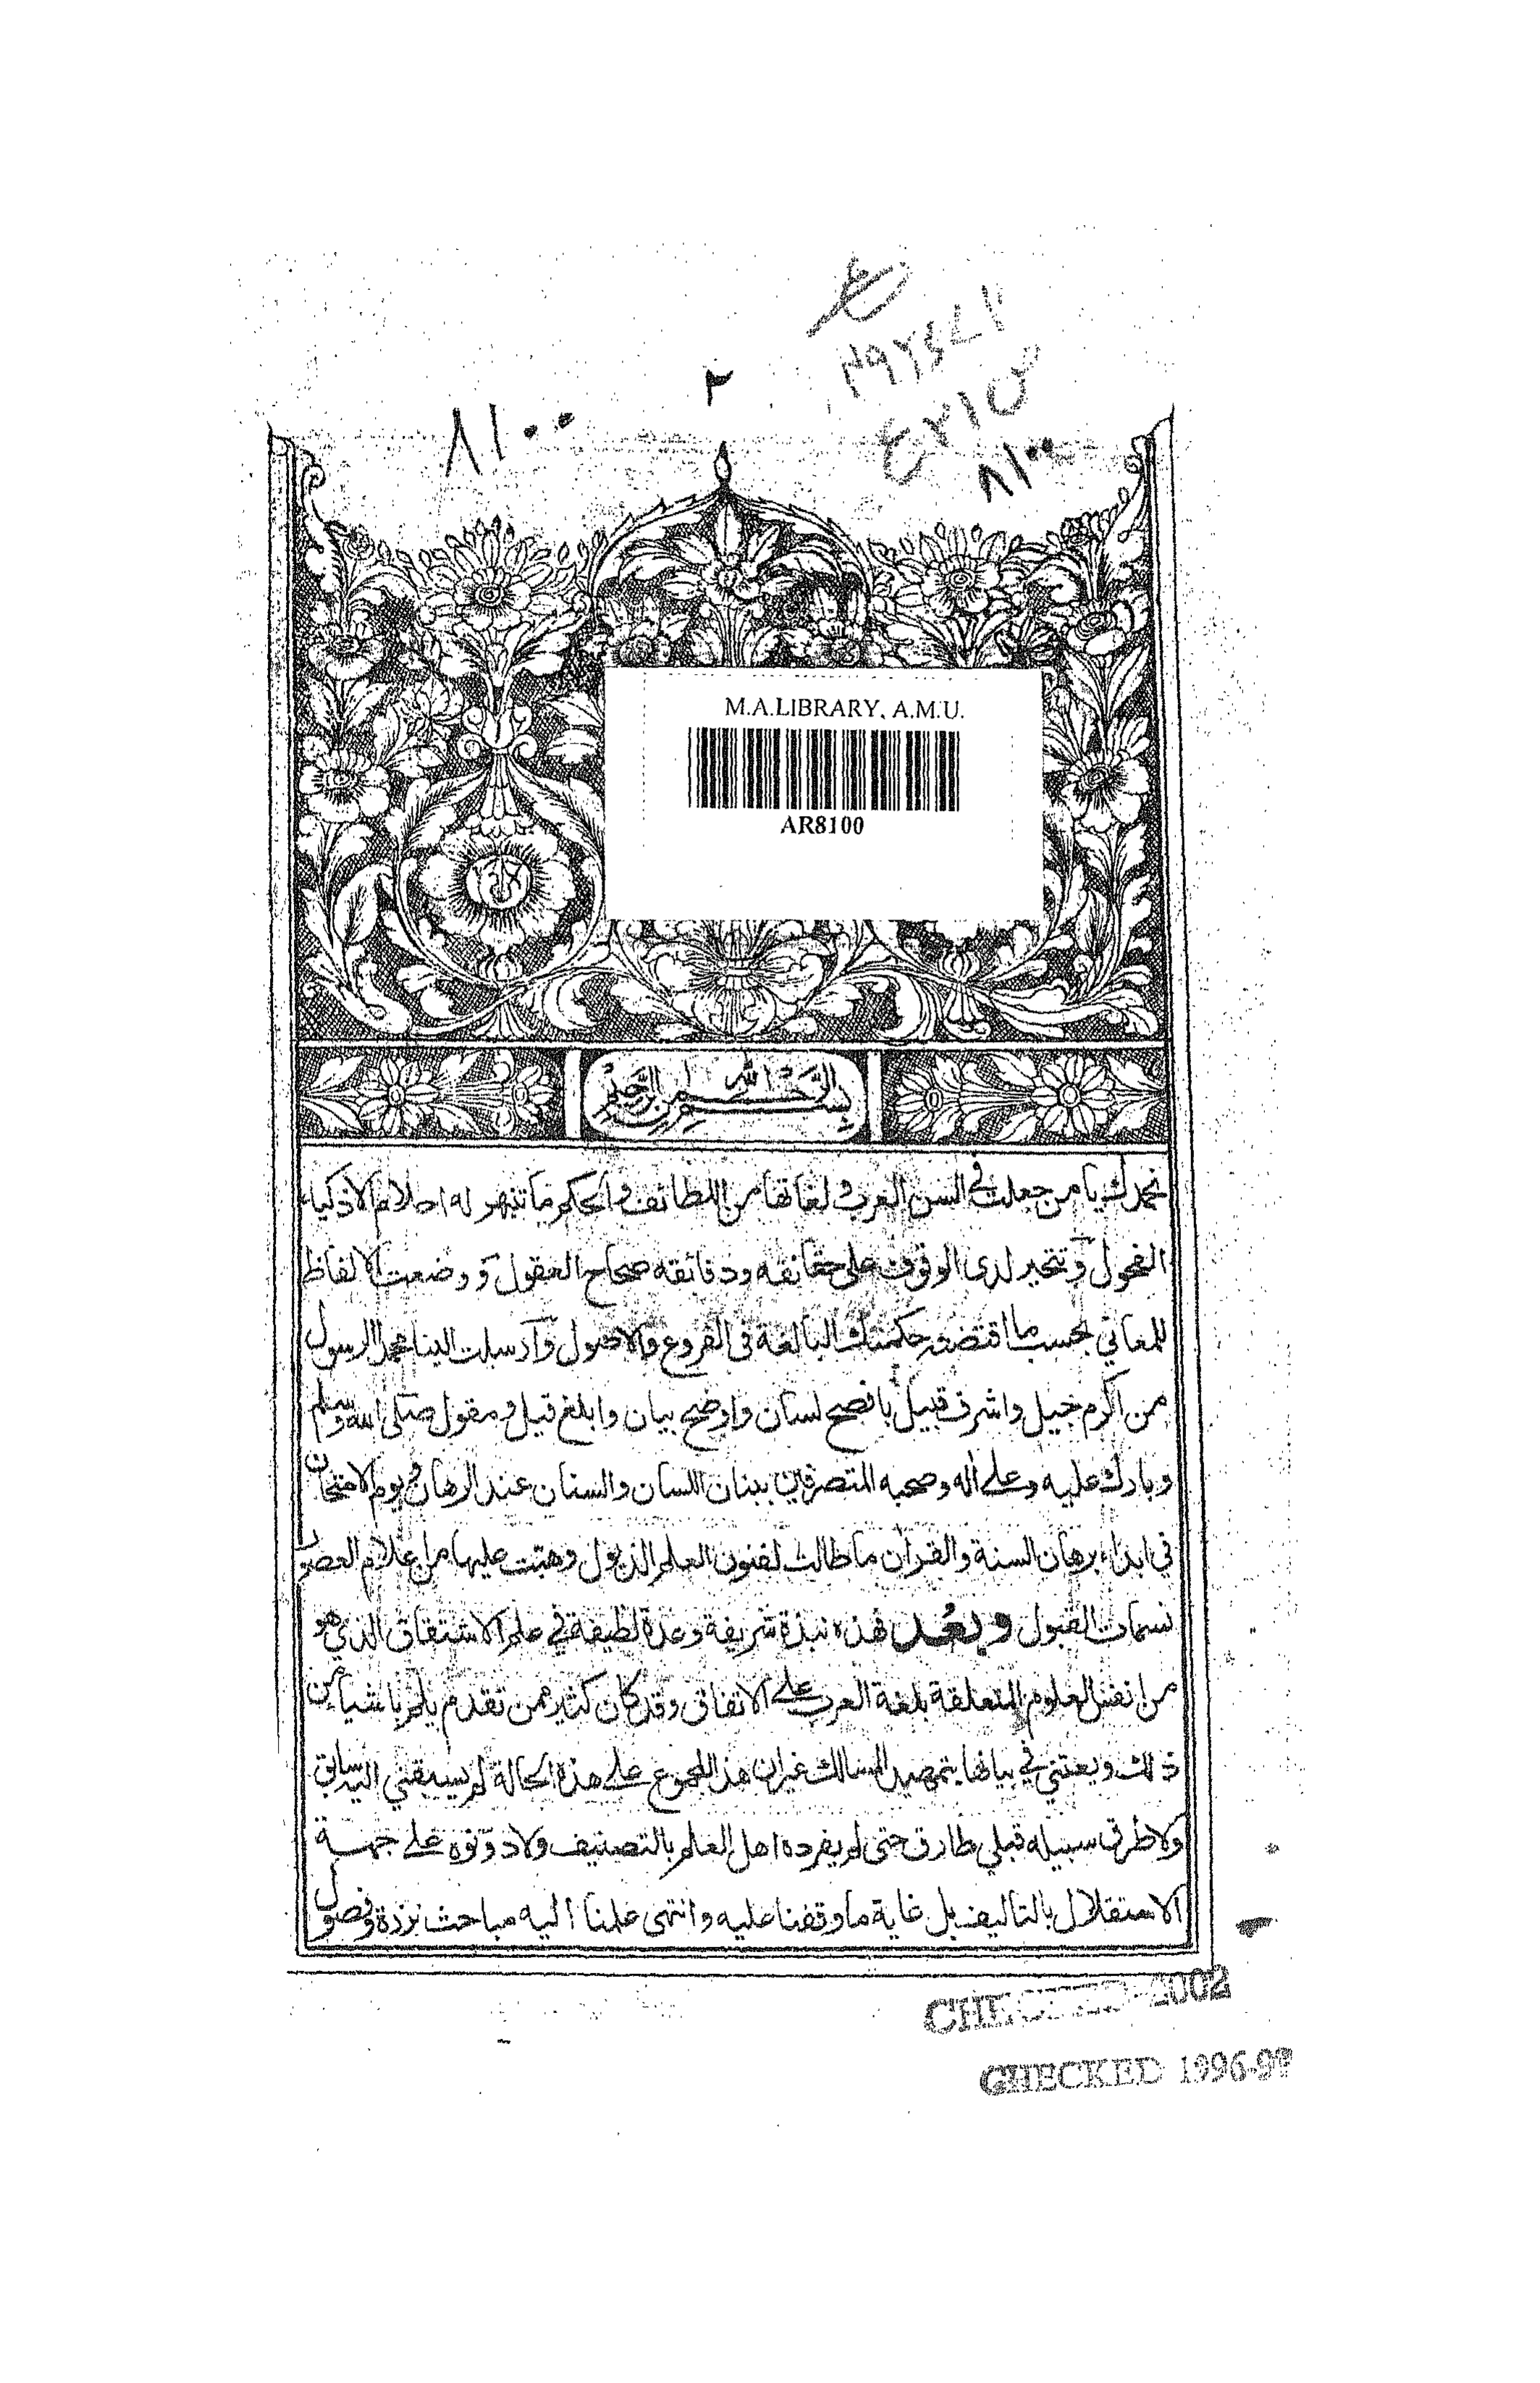 ٢
٨١٠٠
٨١٠٠
M.A.LIBRARY, A.M.U.
AR8100
بسم الله الرحمن الرحيم
نحمدك يا من جعلت في السن العرب ولغاتها من اللطائف والحكم ما تنبهر له احلام الاذكياء
الفحول وتتحير لدى الوقوف على حقائقه ودقائقه صحاح العقول ووضعت الالفاظ
للمعاني بحسب ما اقتضته حكمتك البالغة في الفروع والاصول وآرسلت الينا محمد الرسول
من اكرم جيل واشرف قبيل بافصح لسان واوضح بيان وابلغ قيل ومقول صلى الله وسلم
وبارك عليه وعلى أله وصحبه المتصرفين ببنان اللسان والسنان عند الرهان ويوم الامتحان
في ابداء برهان السنة والقرأن ما طالت لفنون العلم الذيول وهبت عليها من اعلام العصور
نسمات القبول وبعُد فهذه نبذة شريفة وعدة لطيفة في علم الاشتقاق الذي هو
من انفس العلوم المتعلقة بلغة العرب على الاتفاق وقد كان كثير ممن تقدم يلم باشيا من
ذلك ويعتني في بيانها بتمهيد المسالك غير ان هذا المجموع على هذه الحالة لم يسبقني اليه سابق
ولا طرق سبيله قبلي طارق حتى لم يفرده اهل العلم بالتصنيف ولا دوّنوه على جهة
الاستقلال بالتاليف بل غاية ما وقفنا عليه وانتهى علمنا اليه مباحث نزرة وفصول
CHECKED-2002
CHECKED 1996-97